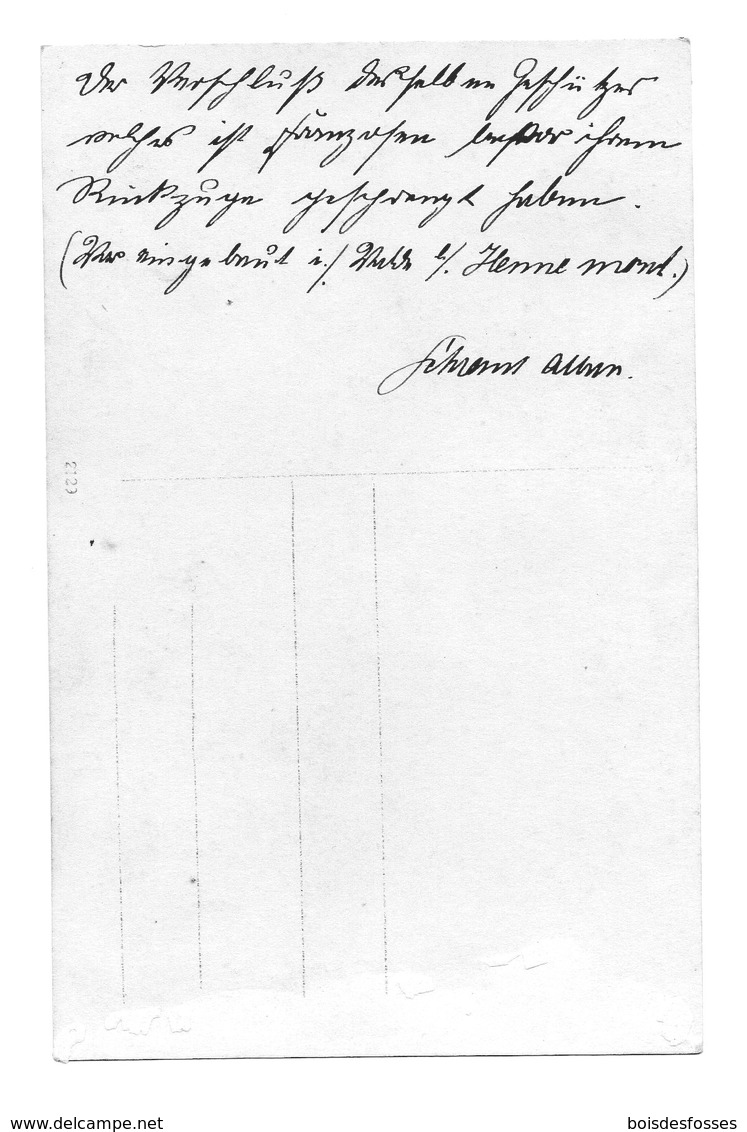 Der Verschluß desselben Geschützes
welches die Franzosen bevor ihrem
Rückzuge gesprengt haben.
(War eingebaut i./ Walde b/. Hennemont.)
2129
www.delcampe.net
boisdesfosses